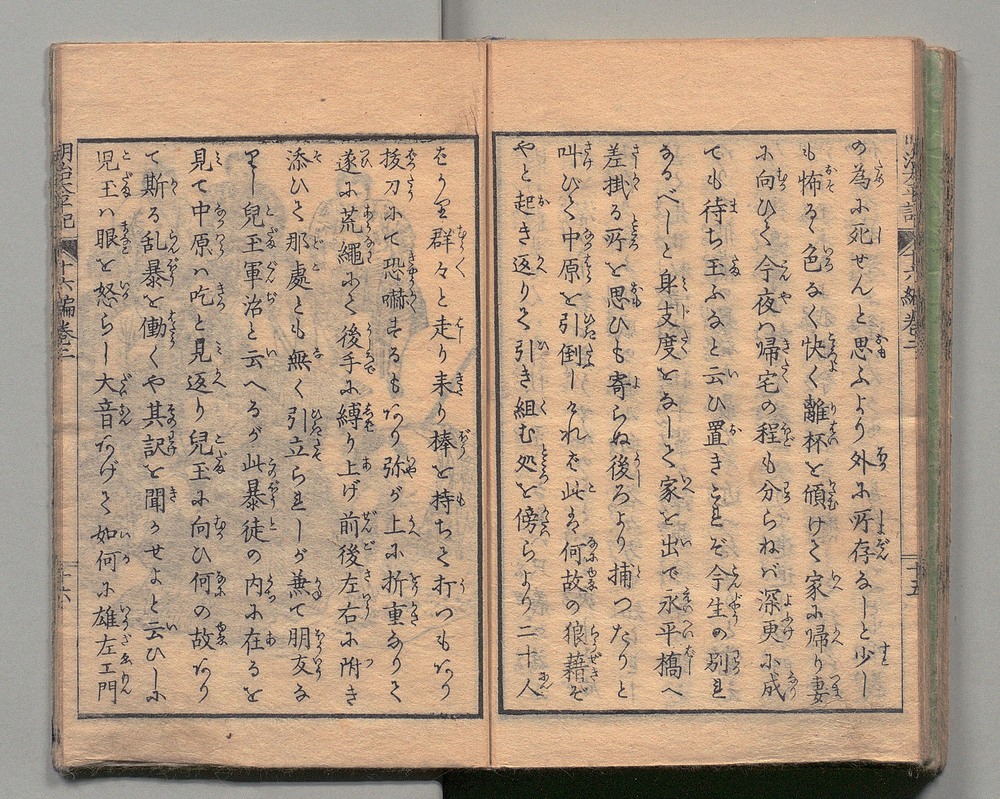 の為に死せんと思ふより外に所存なしと少し
も怖るゝ色なく快く離杯を傾けて家に帰り妻
に向ひて今夜ハ帰宅の程も分らねバ深更に成
ても待ち玉ふなと云ひ置きこれぞ今生の別れ
なるべしと身支度をなして家を出で永平橋へ
差掛る所を思ひも寄らぬ後ろより捕つたりと
叫びて中原を引倒しけれバ此ハ何故の狼藉ぞ
やと起き返りて引き組む処を傍らより二十人
をかり群々と走り来り棒を持ちて打つもあり
抜刀にて恐嚇するもあり弥が上に折重ありて
遂に荒縄にて後手に縛り上げ前後左右に附き
添ひて那處とも無く引立られしが兼て朋友な
りし兒玉軍治と云へるが此暴徒の内に在るを
見て中原ハ吃と見返り兒玉に向ひ何の故あり
て斯る乱暴を働くや其訳を聞かせよと云ひしに
児玉ハ眼を怒らし大音あげて如何に雄左エ門
明治太平記
十六編巻二
十五
明治太平記
十六編巻二
十六